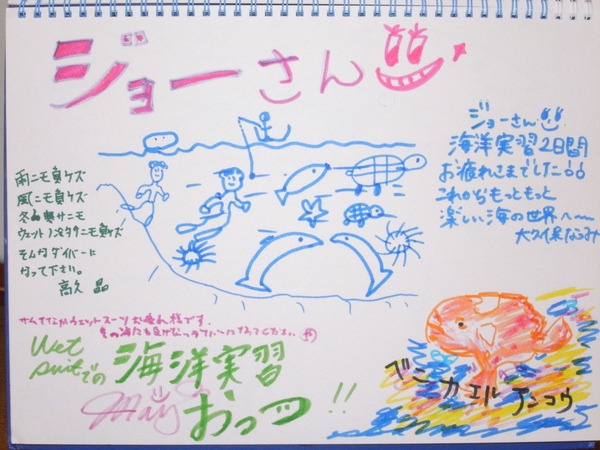 ジョーさん
ジョーさん
海洋実習2日間
お疲れさまでした!!
これからもっともっと
楽しい海の世界へ〜
大久保なるみ
雨ニモ負ケズ
風ニモ負ケズ
冬の寒サニモ
ウェットノ冷タサニモ負ケズ
そんなダイバーに
なって下さい。
高久 晶
さんてんかウェットスーツお疲れ様です。
Wet
suitでの
海洋実習
おっつ!!
May
ベニカエルアンコウ